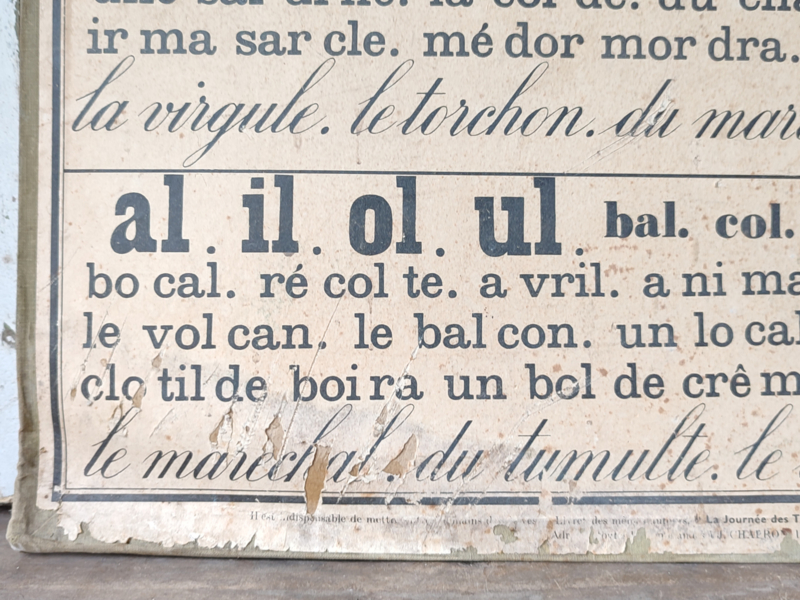 ir ma sar cle. mé dor mor dra.
la virgule. le torchon. du
al. il. ol. ul. bal. col.
bo cal. ré col te. a vril. a ni
le vol can. le bal con. un lo cal
clo til de boi ra un bol de
le maréchal. du tumulte. le
Il est indispensable de La Journée des